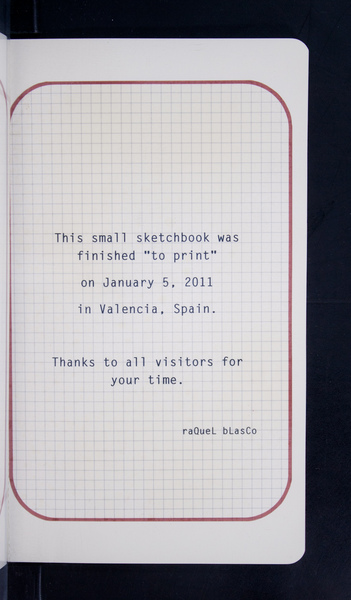 This small sketchbook was
finished "to print"
on January 5, 2011
in Valencia, Spain.
Thanks to all visitors for
your time.
raQueL bLasCo